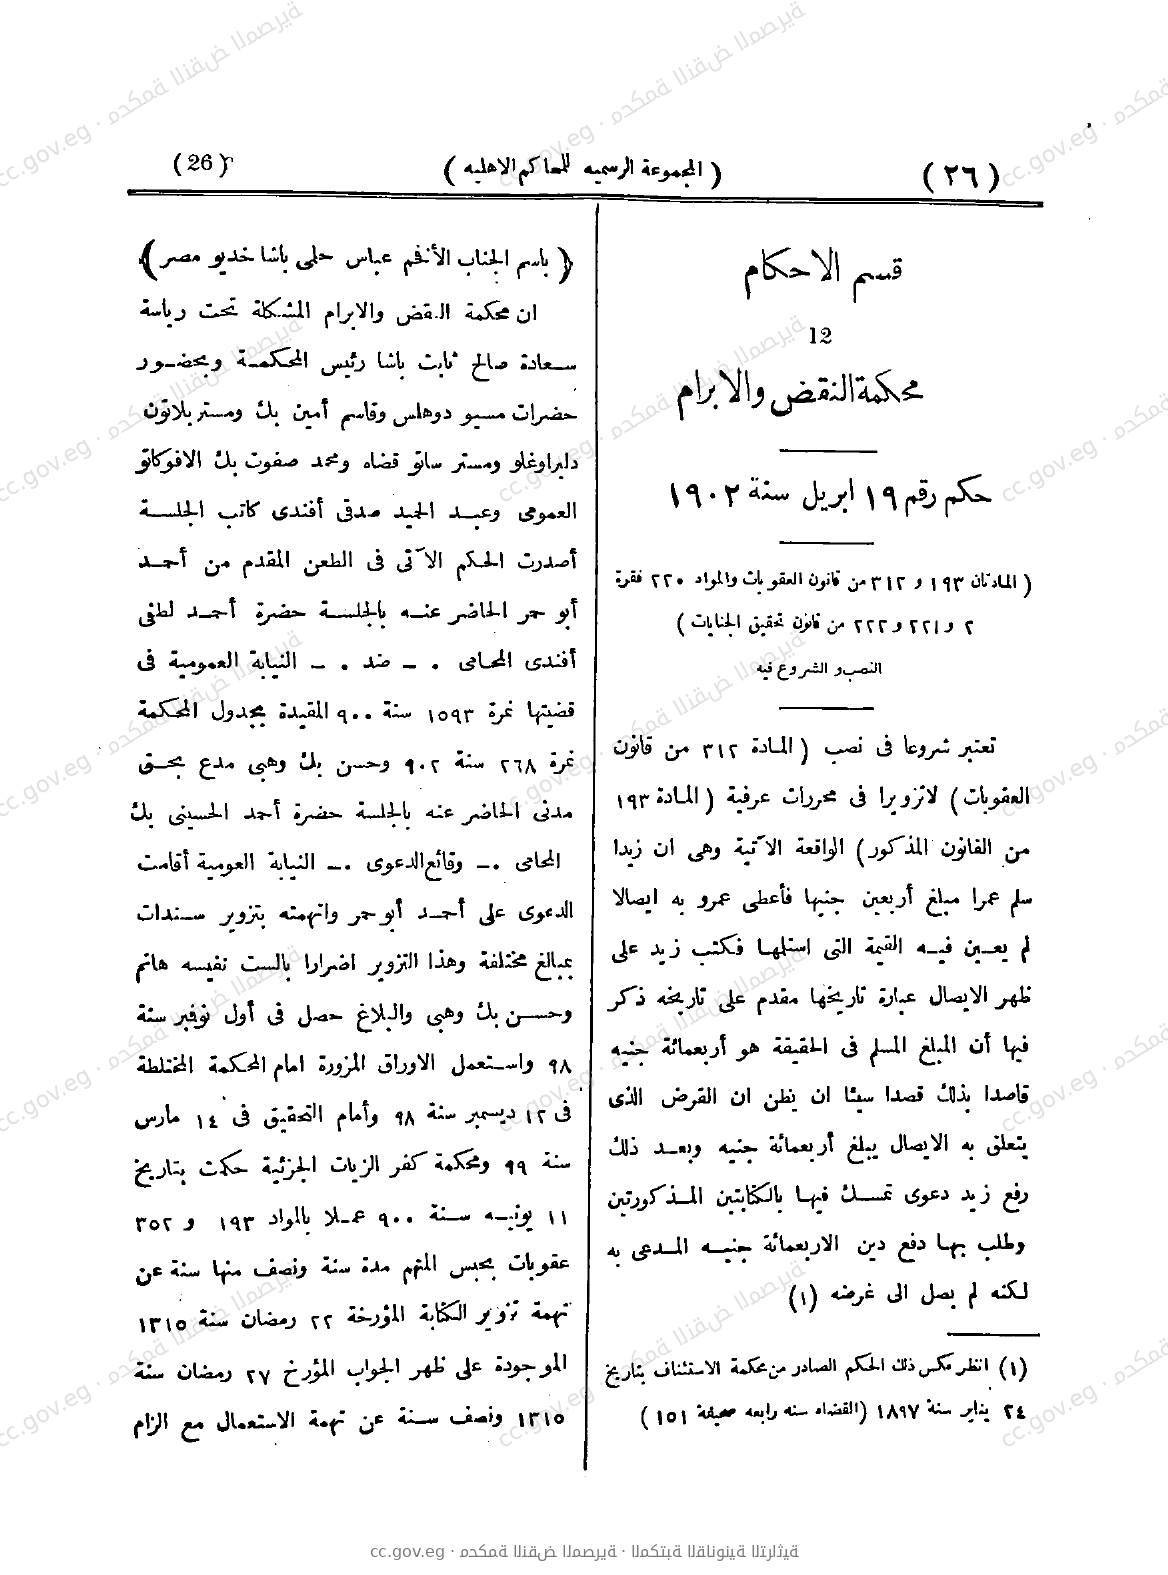 (٢٦)
(المجموعة الرسميه للمحاكم الاهليه)
(26)
قسم الاحكام
12
محكمة النقض والابرام
حكم رقم ١٩ ابريل سنة ١٩٠٢
(المادتان ١٩٣ و ٣١٢ من قانون العقوبات والمواد ٢٢٠ فقرة
٢ و ٢٢١ و ٢٢٢ من قانون تحقيق الجنايات)
النصب والشروع فيه
تعتبر شروعا فى نصب (المادة ٣١٢ من قانون
العقوبات) لا تزويرا فى محررات عرفية (المادة ١٩٣
من القانون المذكور) الواقعة الآتية وهى ان زيدا
سلم عمرا مبلغ أربعين جنيها فأعطى عمرو به ايصالا
لم يعين فيه القيمة التى استلمها فكتب زيد على
ظهر الايصال عبارة تاريخها مقدم على تاريخه ذكر
فيها أن المبلغ المسلم فى الحقيقة هو أربعمائة جنيه
قاصدا بذلك قصدا سيئا ان يظن ان القرض الذى
يتعلق به الايصال يبلغ أربعمائة جنيه وبعد ذلك
رفع زيد دعوى تمسك فيها بالكتابتين المذكورتين
وطلب بها دفع دين الاربعمائة جنيه المدعى به
لكنه لم يصل الى غرضه (١)
(١) انظر عكس ذلك الحكم الصادر من محكمة الاستئناف بتاريخ
٢٤ يناير سنة ١٨٩٧ (القضاء سنه رابعه صحيفة ١٥١)
(باسم الجناب الأفخم عباس حلمى باشا خديو مصر)
ان محكمة النقض والابرام المشكلة تحت رياسة
سعادة صالح ثابت باشا رئيس المحكمة وبحضور
حضرات مسيو دوهلس وقاسم أمين بك ومستر بلاتون
دلبراوغلو ومستر ساتو قضاه ومحمد صفوت بك الافوكاتو
العمومى وعبد المجيد صدقى أفندى كاتب الجلسة
أصدرت الحكم الآتى فى الطعن المقدم من أحمد
أبو حمر الحاضر عنه بالجلسة حضرة أحمد لطفى
أفندى المحامى ٠ – ضد ٠ – النيابة العمومية فى
قضيتها نمرة ١٥٩٣ سنة ٩٠٠ المقيدة بجدول المحكمة
نمرة ٢٦٨ سنة ٩٠٢ وحسن بك وهبى مدع بحق
مدنى الحاضر عنه بالجلسة حضرة أحمد الحسينى بك
المحامى ٠– وقائع الدعوى ٠– النيابة العومية أقامت
الدعوى على أحمد أبو حمر واتهمته بتزوير سندات
بمبالغ مختلفة وهذا التزوير اضرارا بالست نفيسه هانم
وحسن بك وهبى والبلاغ حصل فى أول نوفمبر سنة
٩٨ واستعمل الاوراق المزورة امام المحكمة المختلطة
فى ١٢ ديسمبر سنة ٩٨ وأمام التحقيق فى ١٤ مارس
سنة ٩٩ ومحكمة كفر الزيات الجزئية حكمت بتاريخ
١١ يونيه سنة ٩٠٠ عملا بالمواد ١٩٣ و ٣٥٢
عقوبات بحبس المتهم مدة سنة ونصف منها سنة عن
تهمة تزوير الكتابة المؤرخة ٢٢ رمضان سنة ١٣١٥
الموجودة على ظهر الجواب المؤرخ ٢٧ رمضان سنة
١٣١٥ ونصف سنة عن تهمة الاستعمال مع الزام
cc.gov.eg · محكمة النقض المصرية · المكتبة القانونية التراثية